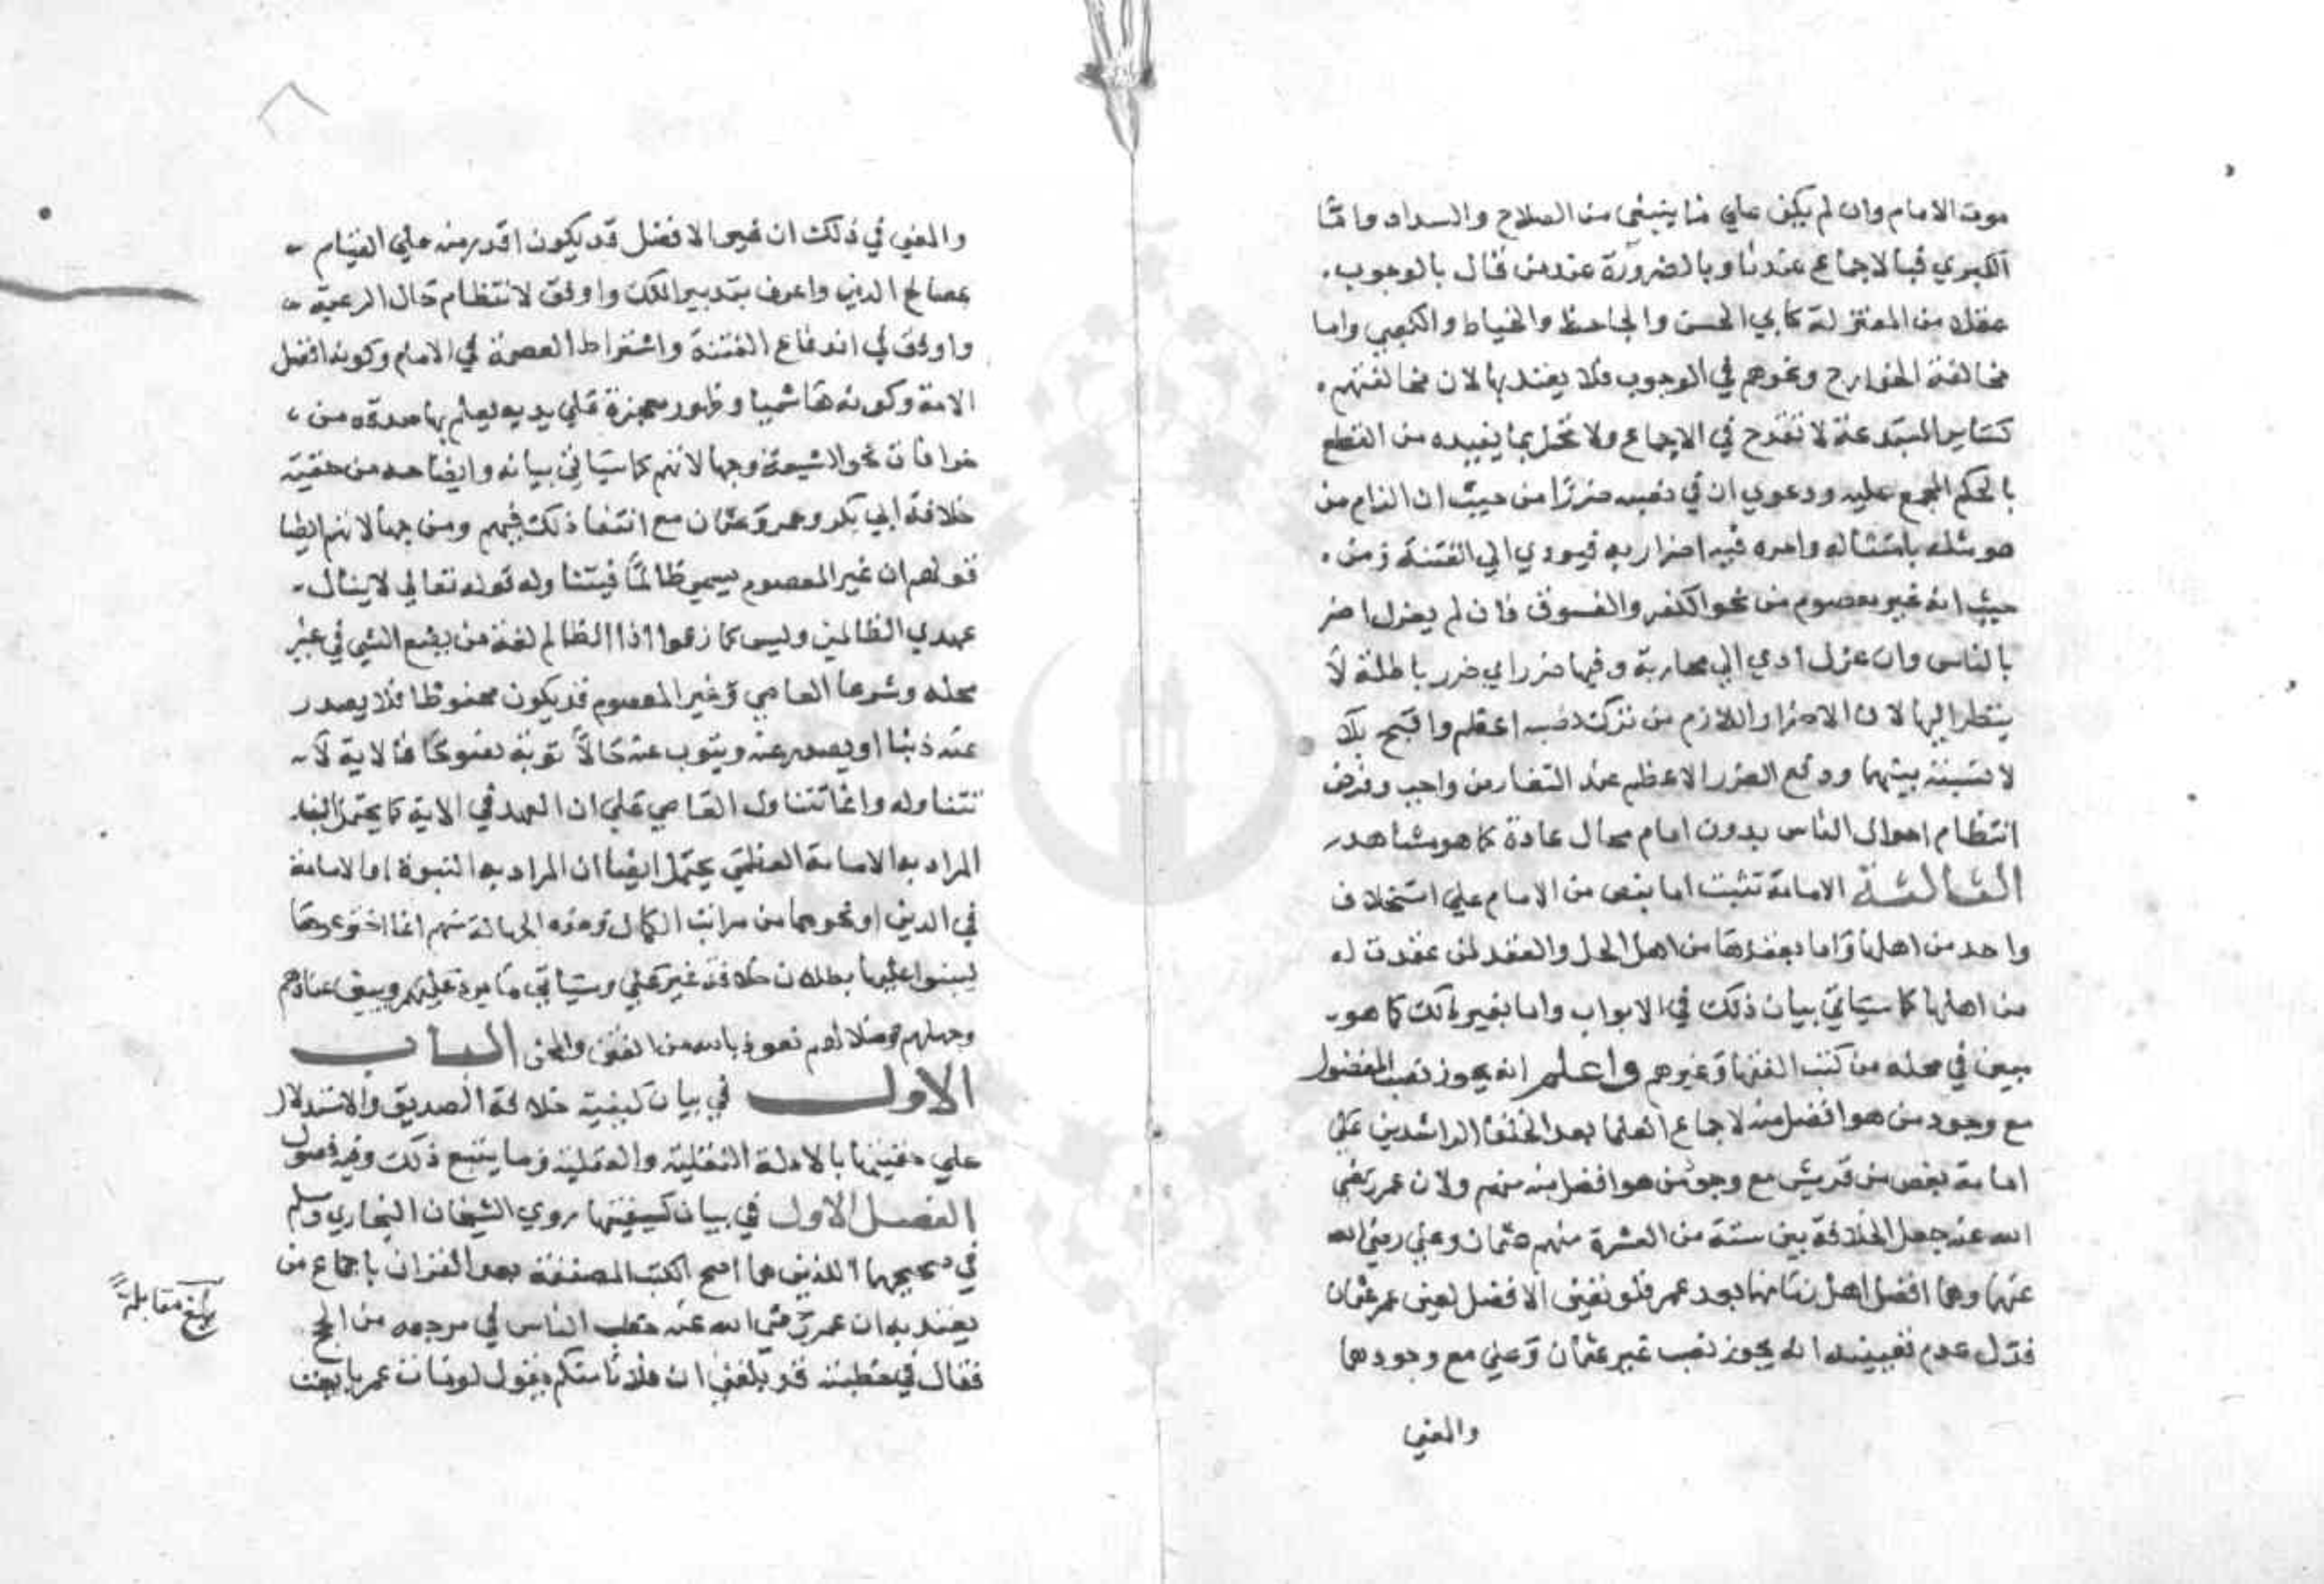 موت الامام وان لم يكن علي ما ينبغي من الصلاح والسداد واما
الكبري فبالاجماع عندنا وبالضرورة عند من قال بالوجوب
عقلا من المعتزلة كابي الحسن والجاحظ والخياط والكعبي واما
مخالفة الخوارج ونحوهم في الوجوب فلا يعتد بها لان مخالفتهم
كساير المبتدعة لا تقدح في الاجماع ولا تخل بما يفيده من القطع
بالحكم المجمع عليه ودعوي ان في نصبه ضررا من حيث ان الزام من
هو مثله بامتثاله وامره فيه اضرار به فيودي الي الفتنة ومن
حيث انه غير معصوم من نحو الكفر والفسوق فان لم يعزل اضر
بالناس وان عزل ادي الي محاربة وفيها ضرر اي ضرر باطلة لا
ينظر اليها لان الاضرار اللازم من ترك نصبه اعظم واقبح بل
لا نسبة بينهما ودفع الضرر الاعظم عند التعارض واجب وفرض
انتظام احوال الناس بدون امام محال عادة كما هو مشاهد
الثالثة الامامة تثبت اما بنص من الامام علي استخلاف
واحد من اهلها واما بعقدها من اهل الحل والعقد لمن عقدت له
من اهلها كما سياتي بيان ذلك في الابواب واما بغير ذلك كما هو
مبين في محله من كتب الفقها وغيرهم واعلم انه يجوز نصب المفضول
مع وجود من هو افضل منه لاجماع العلما بعد الخلفا الراشدين علي
امامة بعض من قريش مع وجود من هو افضل منه منهم ولان عمر رضي
الله عنه جعل الخلافة بين ستة من العشرة منهم عثمان وعلي رضي الله
عنهما وهما افضل اهل زمانهما بعد عمر فلو تعين الافضل لعين عمر عثمان
فدل عدم تعيينه انه يجوز نصب غير عثمان وعلي مع وجودهما
والمعني
والمعني في ذلك ان غير الافضل قد يكون اقدر منه علي القيام
بمصالح الدين واعرف بتدبير الملك واوفق لانتظام حال الرعية
واوفق في اندفاع الفتنة واشتراط العصمة في الامام وكونه افضل
الامة وكونه هاشميا وظهور معجزة علي يديه يعلم بها صدقه من
خرافات نحو الشيعة وجهالاتهم كما سياتي بيانه وايضاحه من حقية
خلافة ابي بكر وعمر وعثمان مع انتفا ذلك فيهم ومن جهالاتهم ايضا
قولهم ان غير المعصوم يسمي ظالما فيتناوله قوله تعالي لا ينال
عهدي الظالمين وليس كما زعموا اذ الظالم لغة من يضع الشي في غير
محله وشرعا العاصي وغير المعصوم قد يكون محفوظا فلا يصدر
عنه ذنبا او يصدر عنه ويتوب عنه حالا توبة نصوحا فالاية لا
تتناوله وانما تتناول العاصي علي ان العهد في الاية كما يحتمل ان
المراد به الامامة العظمي يحتمل ايضا ان المراد به النبوة او الامامة
في الدين او نحوهما من مراتب الكمال وهذه الجهالة منهم انما اخترعوها
ليبنوا عليها بطلان خلافة غير علي وسياتي ما يرد عليهم ويبين عنادهم
وجهلهم وضلالهم نعوذ بالله من الفتن والمحن الباب
الاول في بيان كيفية خلافة الصديق والاستدلال
علي حقيتها بالادلة النقلية والعقلية وما يتبع ذلك وفيه فصول
الفصل الاول في بيان كيفيتها روي الشيخان البخاري ومسلم
في صحيحيهما اللذين هما اصح الكتب المصنفة بعد القران باجماع من
يعتد به ان عمر رضي الله عنه خطب الناس في مرجعه من الحج
فقال في خطبته قد بلغني ان فلانا منكم يقول لو مات عمر بايعت
بلغ مقابلة